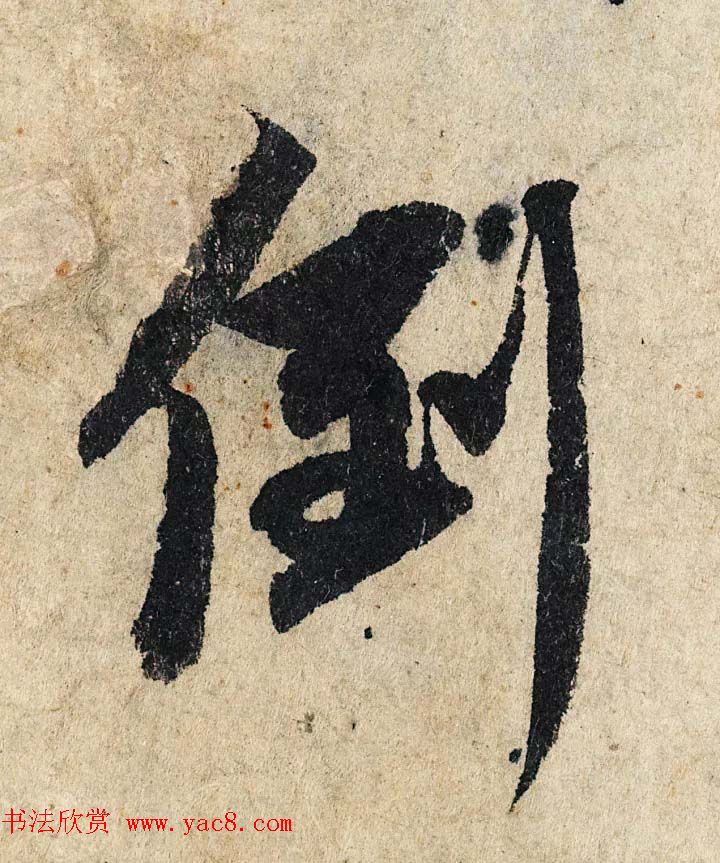 倒
书法欣赏 www.yac8.com